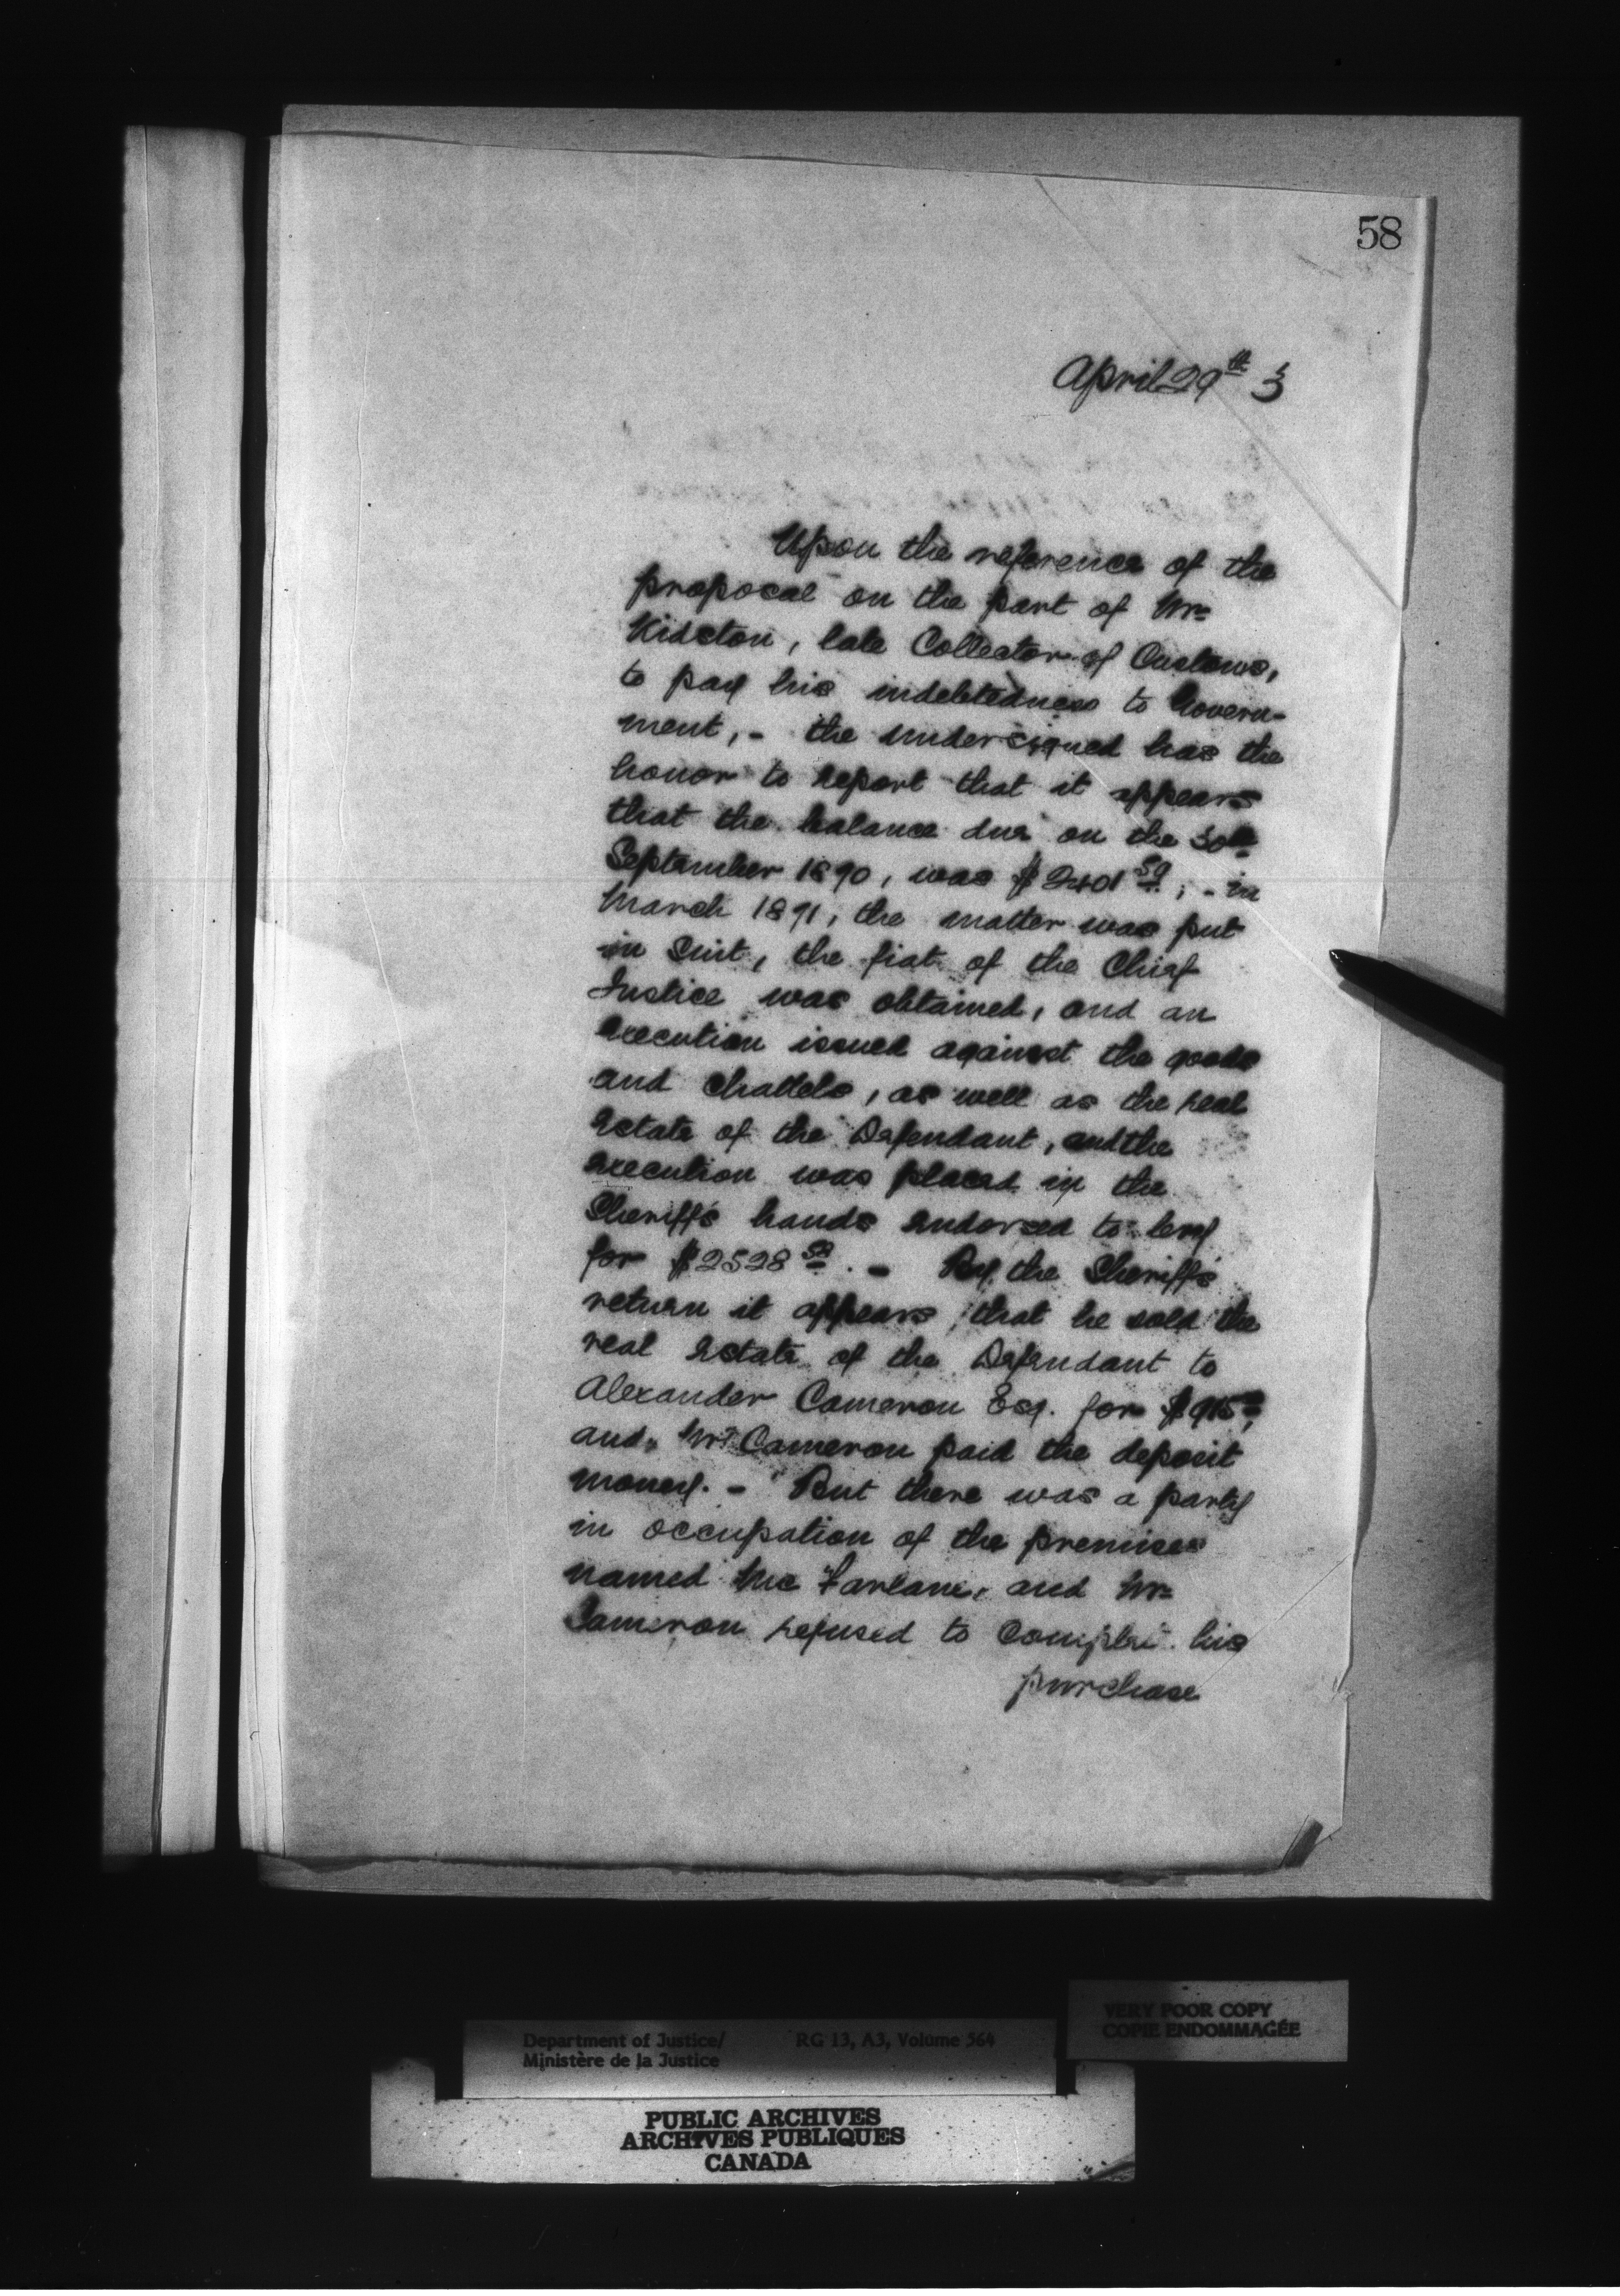 58
April 29th 3
Upon the reference of the
proposal on the part of Mr
Kidston, late Collector of Customs,
to pay his indebtedness to Govern-
ment, - the undersigned has the
honor to report that it appears
that the balance due on the 30th
September 1890, was $2401 59; - in
March 1891, the matter was put
in Suit, the fiat of the Chief
Justice was obtained, and an
execution issued against the goods
and Chattels, as well as the real
Estate of the Defendant, and the
execution was placed in the
Sheriff's hands endorsed to levy
for $2528 . - By the Sheriff's
return it appears, that he sold the
real Estate of the Defendant to
Alexander Cameron Esq. for $915,
and Mr Cameron paid the deposit
money. - But there was a party
in occupation of the premises
named McFarlane, and Mr
Cameron refused to Complete his
purchase
Department of Justice/ RG 13, A3, Volume 564
Ministère de la Justice
VERY POOR COPY
COPIE ENDOMMAGÉE
PUBLIC ARCHIVES
ARCHIVES PUBLIQUES
CANADA